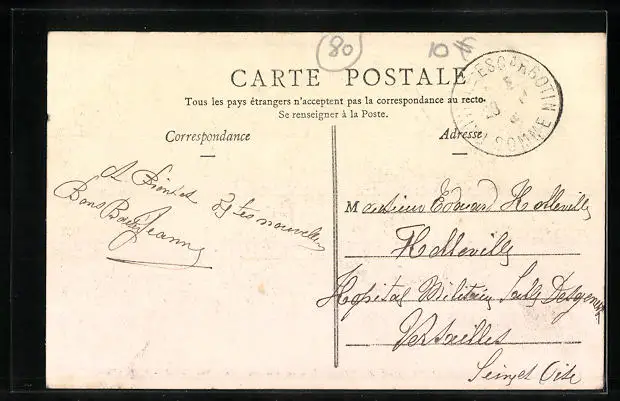 80
10 f
CARTE POSTALE
Tous les pays étrangers n'acceptent pas la correspondance au recto.
Se renseigner à la Poste.
Correspondance
Adresse
ESCARBOTIN
SOMME
A Bientôt
Bons Baisers
Jeanne
tes nouvelles
Monsieur Edouard Holleville
Holleville
Hopital Militaire Salle Desgenettes
Versailles
Seine et Oise